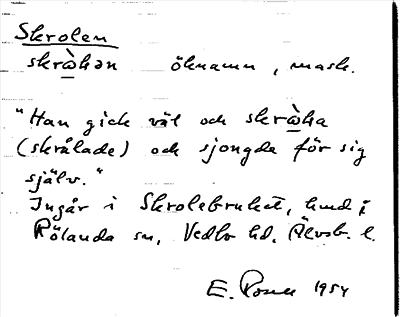 Skrolen
skrὰ̲hən öknamn, mask.
"Han gick väl och skrὰ̲ha
(skrålade) och sjongda för sig
själv."
Ingår i Skrolebruket, hmd i
Rölanda sn, Vedbo hd, Älvsb. l.
E. 1954